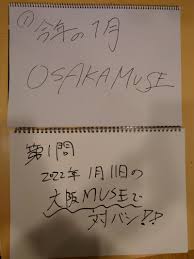 ①
今年の1月
OSAKA MUSE
第1問
2022年1月11日の
大阪MUSEで
対バン!?